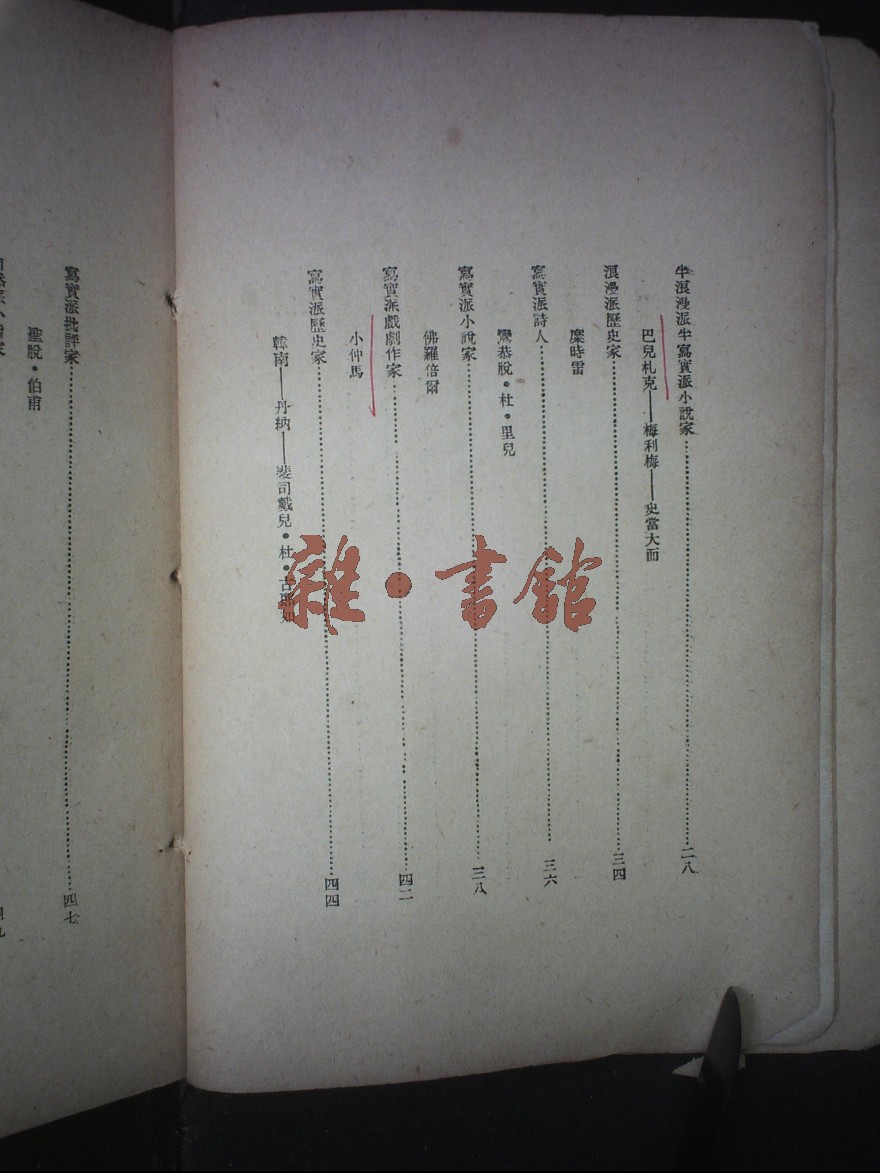 半浪漫派半寫實派小說家……二八
巴兒札克——梅利梅——史當大而
浪漫派歷史家……三四
糜時雷
寫實派詩人……三六
鸞恭脫•杜•里兒
寫實派小說家……三八
佛羅倍爾
寫實派戲劇作家……四二
小仲馬
寫實派歷史家……四四
韓南——丹納——裴司戴兒•杜•古郎如
寫實派批評家……四七
聖脫•伯甫
雜•書館